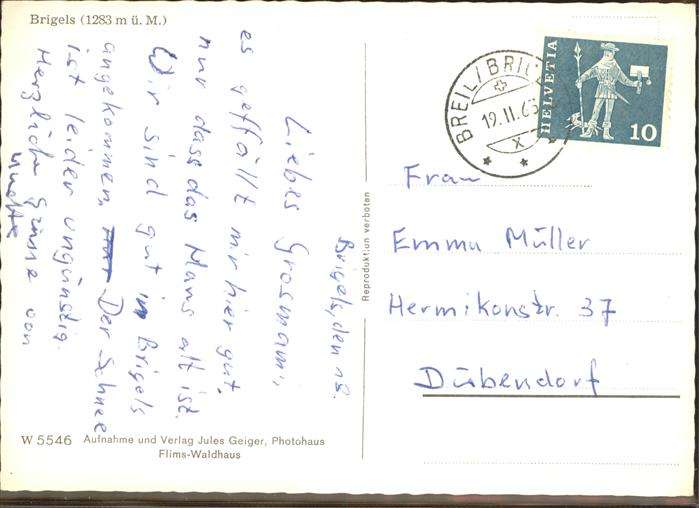 Brigels (1283 m ü. M.)
Brigels, den 18.
Liebes Grosmami,
es geffällt mir hier gut,
nur dass das Haus alt ist.
Wir sind gut in Brigels
angekommen. Der Schnee
ist leider ungünstig.
Herzliche Grüsse von
W 5546 Aufnahme und Verlag Jules Geiger, Photohaus
Flims-Waldhaus
Reproduktion verboten
BREIL/BRIG
19.11.65
X
HELVETIA
10
Frau
Emmu Müller
Hermikonstr. 37
Dübendorf